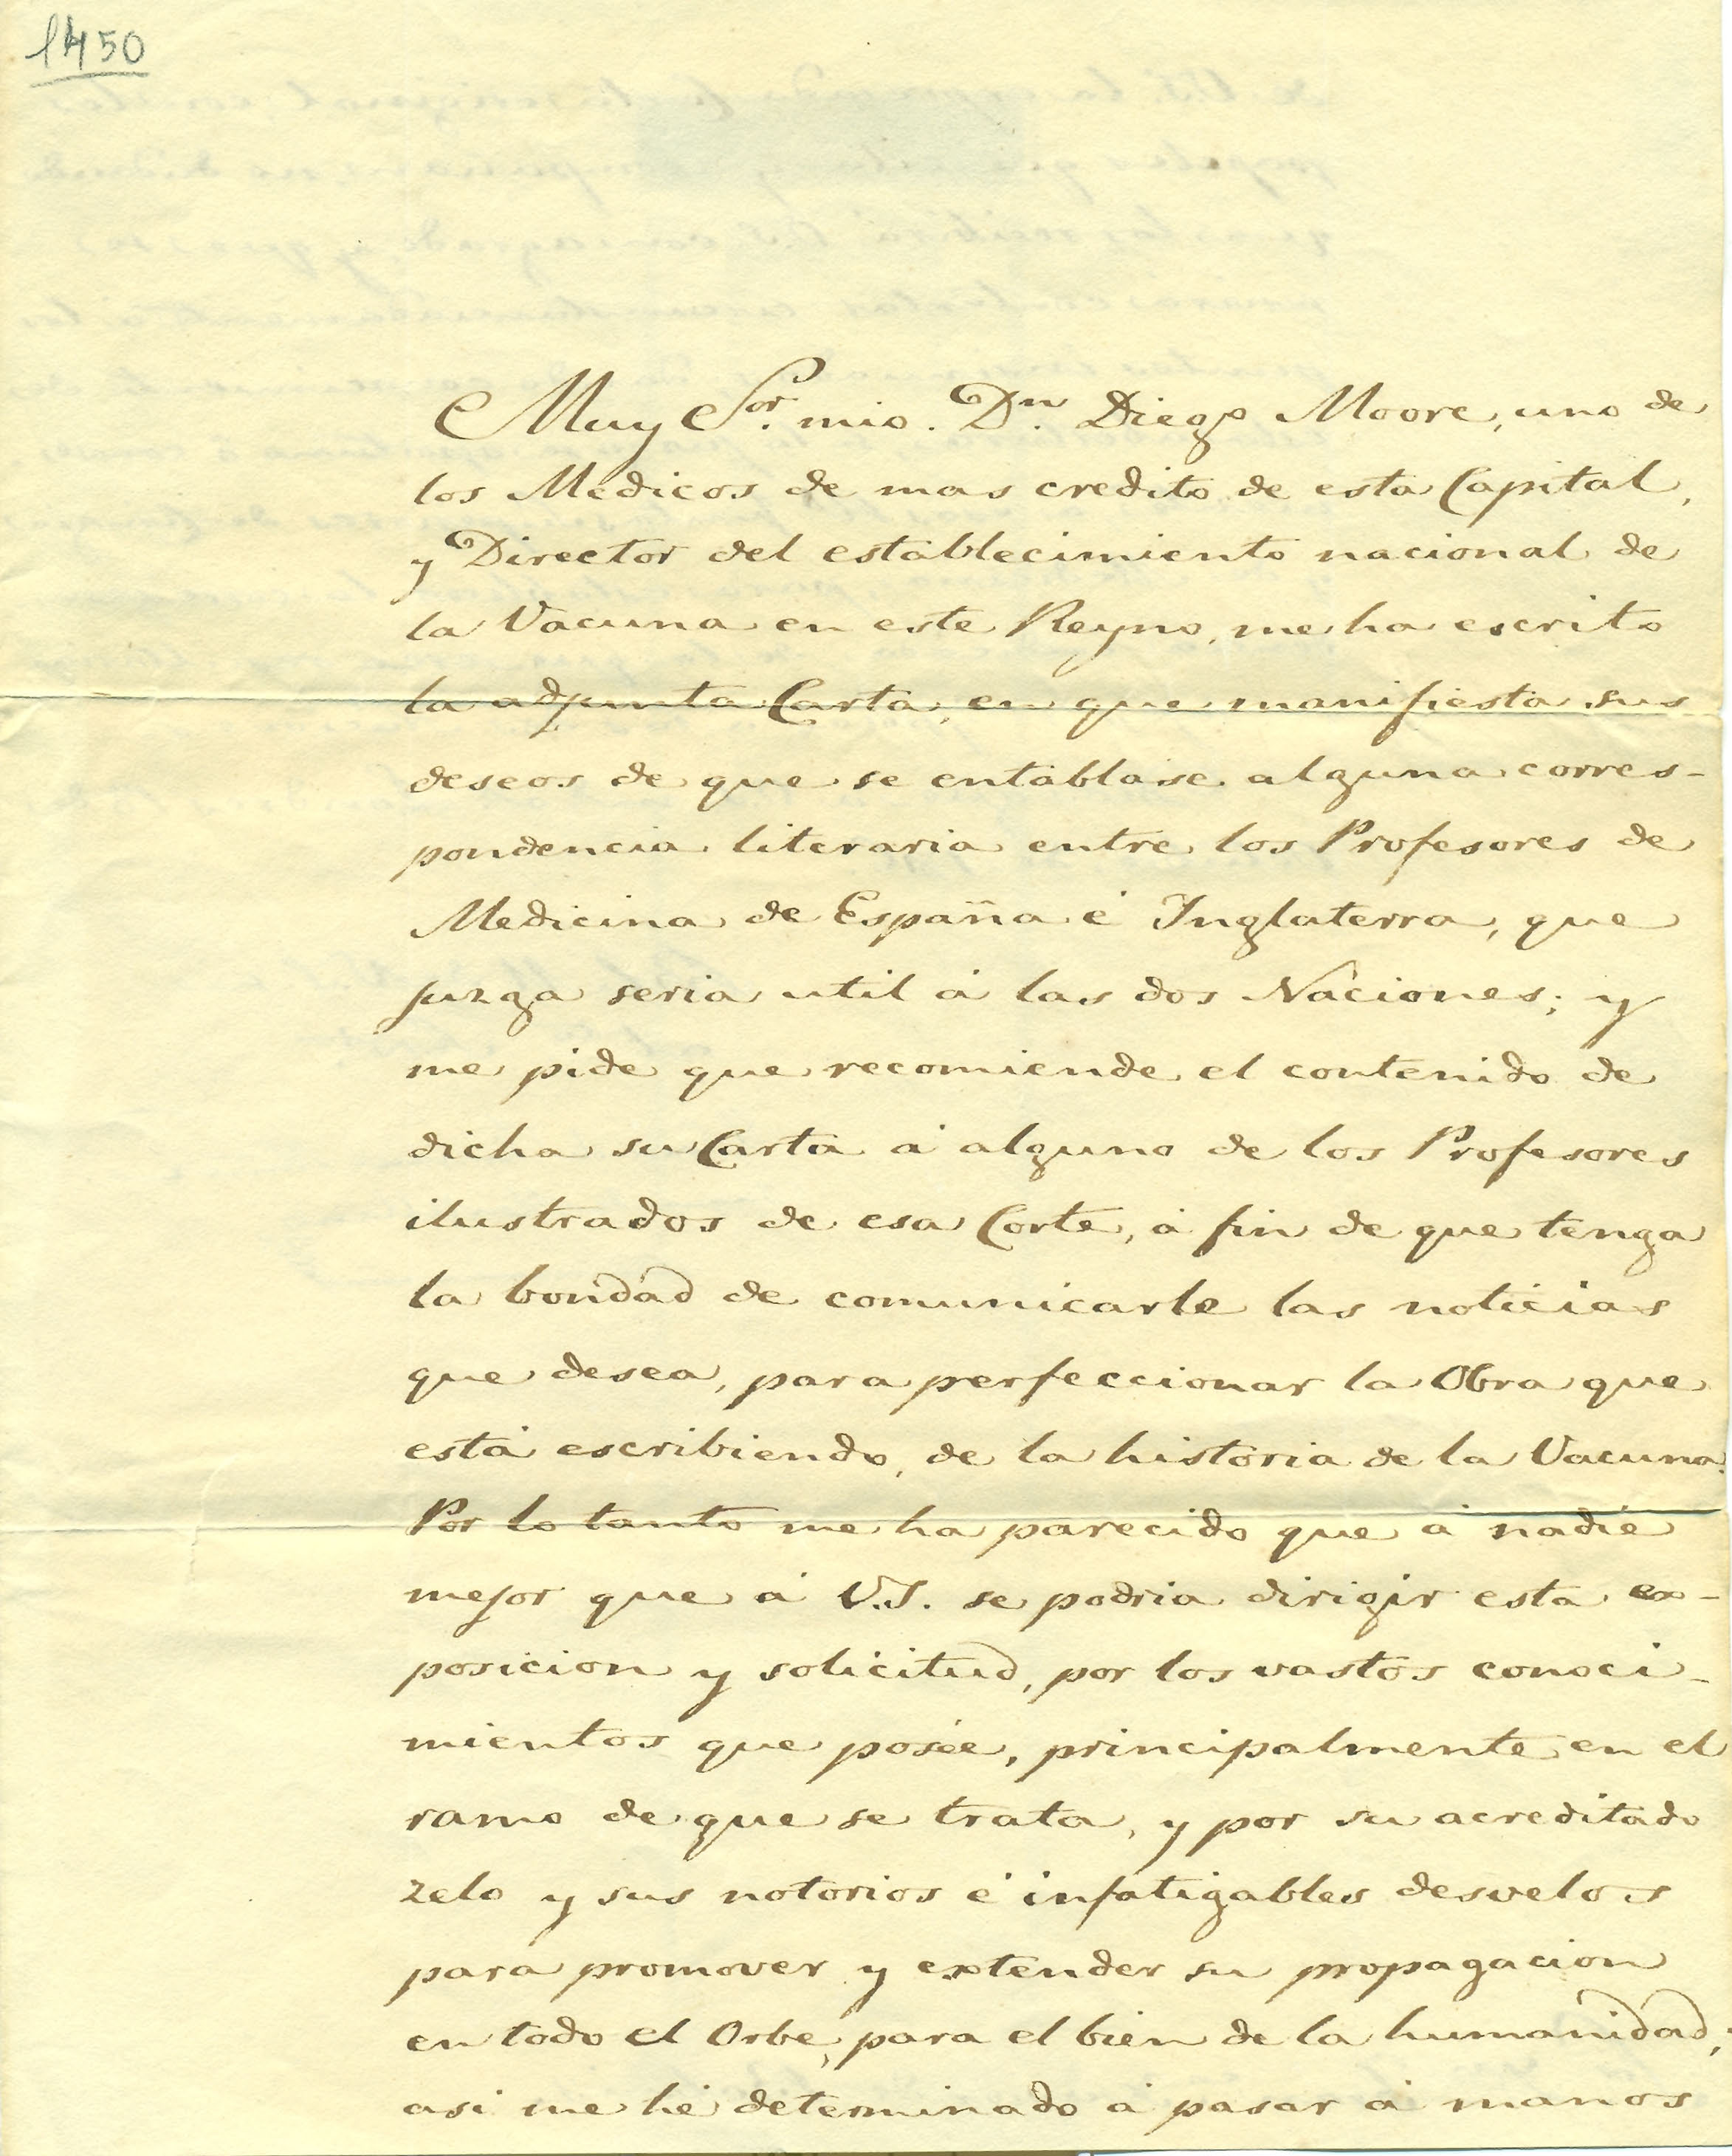 1450
Muy Sor. mio. Dn. Diego Moore, uno de
los Medicos de mas credito de esta Capital,
y Director del establecimiento nacional de
la Vacuna en este Reyno, me ha escrito
la adjunta Carta, en que manifiesta sus
deseos de que se entablase alguna corres-
pondencia literaria entre los Profesores de
Medicina de España é Inglaterra, que
juzga seria util á las dos Naciones; y
me pide que recomiende el contenido de
dicha su Carta á alguno de los Profesores
ilustrados de esa Corte, á fin de que tenga
la bondad de comunicarle las noticias
que desea, para perfeccionar la Obra que
está escribiendo, de la historia de la Vacuna.
Por lo tanto me ha parecido que á nadie
mejor que á V.S. se podria dirigir esta ex-
posicion y solicitud, por los vastos conoci-
mientos que posée, principalmente en el
ramo de que se trata, y por su acreditado
zelo y sus notorios é infatigables desvelos
para promover y extender su propagacion
en todo el Orbe, para el bien de la humanidad;
asi me hé determinado á pasar á manos